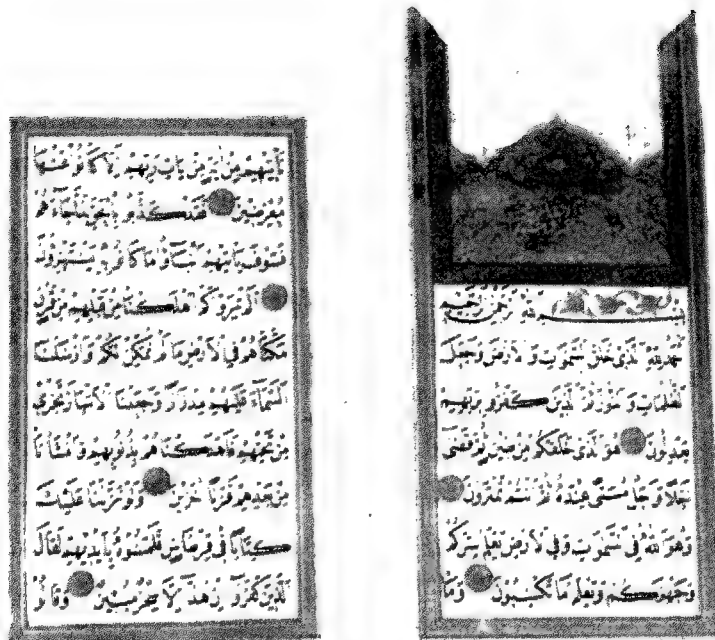 بسم الله الرحمن الرحيم
الحمد لله الذي خلق السموات والارض وجعل
الظلمات والنور ثم الذين كفروا بربهم
يعدلون هو الذي خلقكم من طين ثم قضى
اجلا واجل مسمى عنده ثم انتم تمترون
وهو الله في السموات وفي الارض يعلم سركم
وجهركم ويعلم ما تكسبون وما
تأتيهم من اية من ايات ربهم الا كانوا عنها
معرضين فقد كذبوا بالحق لما جاءهم
فسوف يأتيهم انباء ما كانوا به يستهزؤن
الم يروا كم اهلكنا من قبلهم من قرن
مكناهم في الارض ما لم نمكن لكم وارسلنا
السماء عليهم مدرارا وجعلنا الانهار تجري
من تحتهم فاهلكناهم بذنوبهم وانشأنا
من بعدهم قرنا اخرين ولو نزلنا عليك
كتابا في قرطاس فلمسوه بايديهم لقال
الذين كفروا ان هذا الا سحر مبين وقالوا